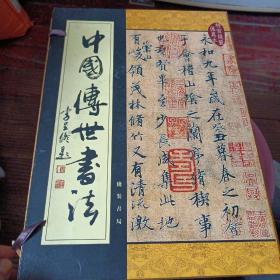 中國傳世書法
李
題
線裝書局
永和九年歲在癸丑暮春之初會
于會稽山陰之蘭亭脩稧事
也羣賢畢至少長咸集此地
有崇山
峻領茂林脩竹又有清流激